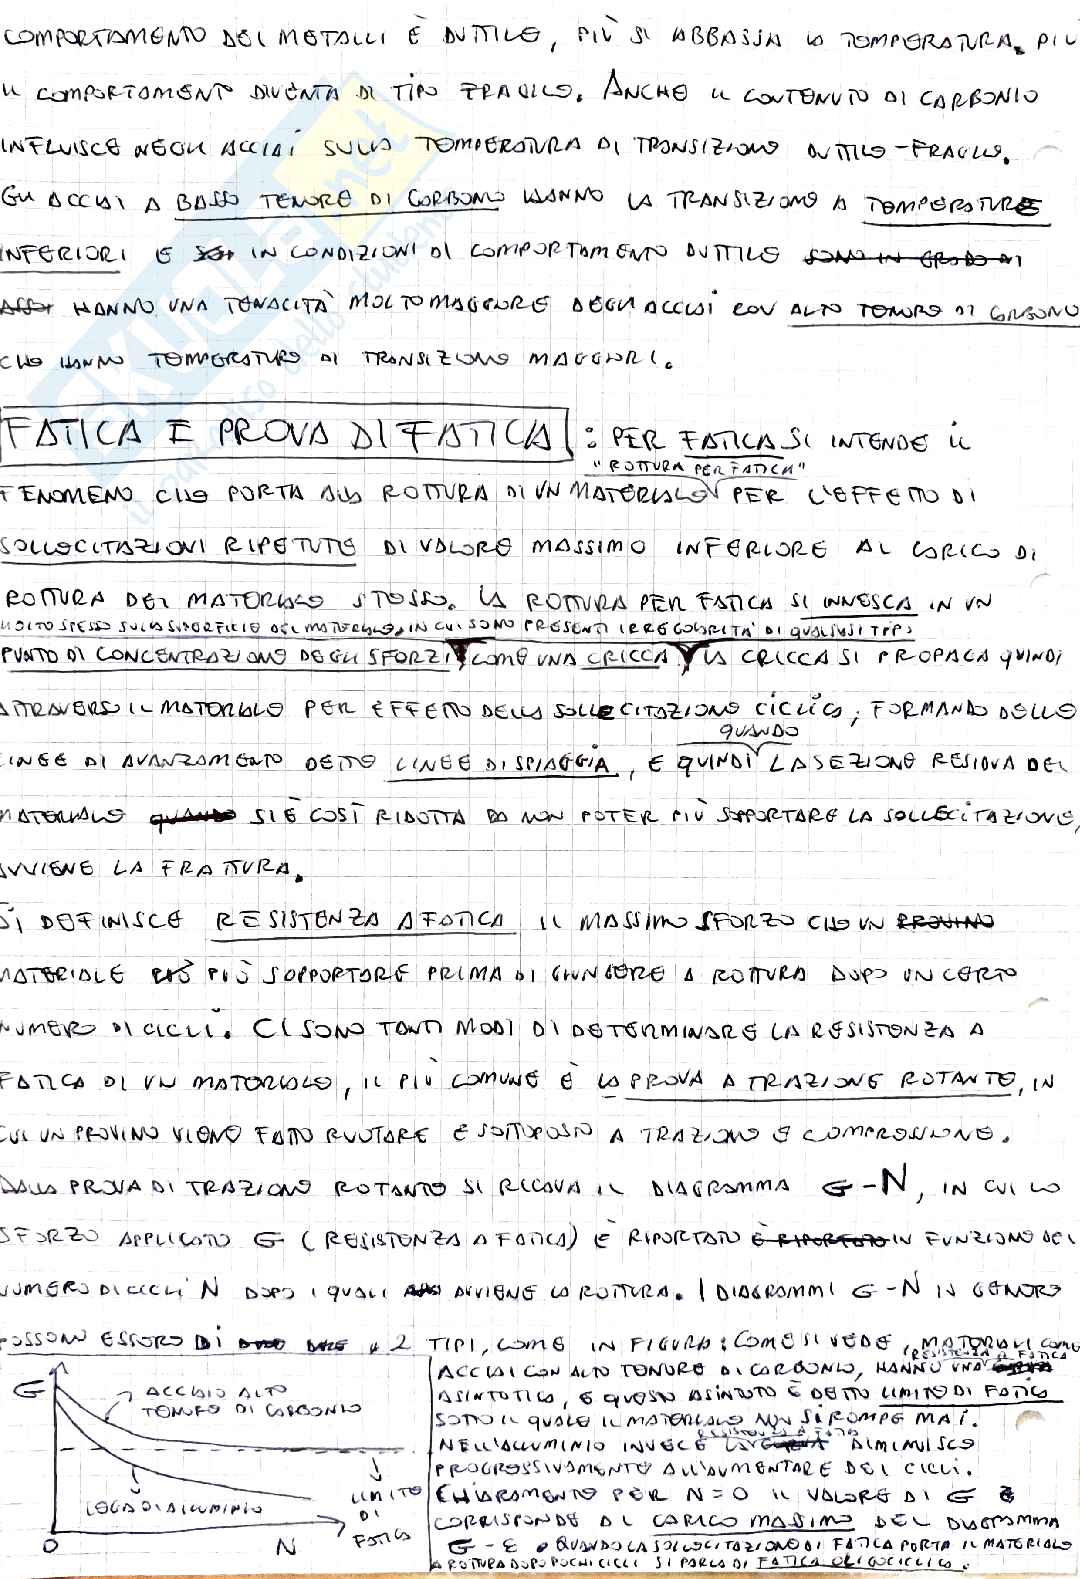 COMPORTAMENTO DEI METALLI È DUTTILE, PIÙ SI ABBASSA LA TEMPERATURA, PIÙ
IL COMPORTAMENTO DIVENTA DI TIPO FRAGILE. ANCHE IL CONTENUTO DI CARBONIO
INFLUISCE NEGLI ACCIAI SULLA TEMPERATURA DI TRANSIZIONE DUTTILE-FRAGILE.
GLI ACCIAI A BASSO TENORE DI CARBONIO HANNO LA TRANSIZIONE A TEMPERATURE
INFERIORI E IN CONDIZIONI DI COMPORTAMENTO DUTTILE SONO IN GRADO DI
HANNO UNA TENACITÀ MOLTO MAGGIORE DEGLI ACCIAI CON ALTO TENORE DI CARBONIO
CHE HANNO TEMPERATURE DI TRANSIZIONE MAGGIORI.
FATICA E PROVA DI FATICA : PER FATICA SI INTENDE IL
"ROTTURA PER FATICA"
FENOMENO CHE PORTA ALLA ROTTURA DI UN MATERIALE PER L'EFFETTO DI
SOLLECITAZIONI RIPETUTE DI VALORE MASSIMO INFERIORE AL CARICO DI
ROTTURA DEL MATERIALE STESSO. LA ROTTURA PER FATICA SI INNESCA IN UN
MOLTO SPESSO SULLA SUPERFICIE DEL MATERIALE, IN CUI SONO PRESENTI IRREGOLARITÀ DI QUALSIASI TIPO
PUNTO DI CONCENTRAZIONE DEGLI SFORZI COME UNA CRICCA. LA CRICCA SI PROPAGA QUINDI
ATTRAVERSO IL MATERIALE PER EFFETTO DELLA SOLLECITAZIONE CICLICA, FORMANDO DELLE
QUANDO
LINEE DI AVANZAMENTO DETTE LINEE DI SPIAGGIA, E QUINDI LA SEZIONE RESIDUA DEL
MATERIALE QUANDO SI È COSÌ RIDOTTA DA NON POTER PIÙ SOPPORTARE LA SOLLECITAZIONE,
AVVIENE LA FRATTURA.
SI DEFINISCE RESISTENZA A FATICA IL MASSIMO SFORZO CHE UN PROVINO
MATERIALE PUÒ SOPPORTARE PRIMA DI GIUNGERE A ROTTURA DOPO UN CERTO
NUMERO DI CICLI. CI SONO TANTI MODI DI DETERMINARE LA RESISTENZA A
FATICA DI UN MATERIALE, IL PIÙ COMUNE È LA PROVA A TRAZIONE ROTANTE, IN
CUI UN PROVINO VIENE FATTO RUOTARE E SOTTOPOSTO A TRAZIONE E COMPRESSIONE.
DALLA PROVA DI TRAZIONE ROTANTE SI RICAVA IL DIAGRAMMA σ-N, IN CUI LO
SFORZO APPLICATO σ (RESISTENZA A FATICA) È RIPORTATO È RIPORTATO IN FUNZIONE DEL
NUMERO DI CICLI N DOPO I QUALI AVVIENE LA ROTTURA. I DIAGRAMMI σ-N IN GENERE
POSSONO ESSERE DI 2 TIPI, COME IN FIGURA: COME SI VEDE, MATERIALI COME
RESISTENZA A FATICA
ACCIAI CON ALTO TENORE DI CARBONIO, HANNO UNA CURVA
ASINTOTICA, E QUESTO ASINTOTO È DETTO LIMITE DI FATICA
SOTTO IL QUALE IL MATERIALE NON SI ROMPE MAI.
RESISTENZA A FATICA
NELL'ALLUMINIO INVECE LA CURVA DIMINUISCE
PROGRESSIVAMENTE ALL'AUMENTARE DEI CICLI.
CHIARAMENTE PER N=0 IL VALORE DI σ
CORRISPONDE AL CARICO MASSIMO DEL DIAGRAMMA
σ-ε. QUANDO LA SOLLECITAZIONE DI FATICA PORTA IL MATERIALE
A ROTTURA DOPO POCHI CICLI SI PARLA DI FATICA OLIGOCICLICA.
σ
ACCIAIO ALTO
TENORE DI CARBONIO
LEGA DI ALLUMINIO
LIMITE
DI
FATICA
0
N